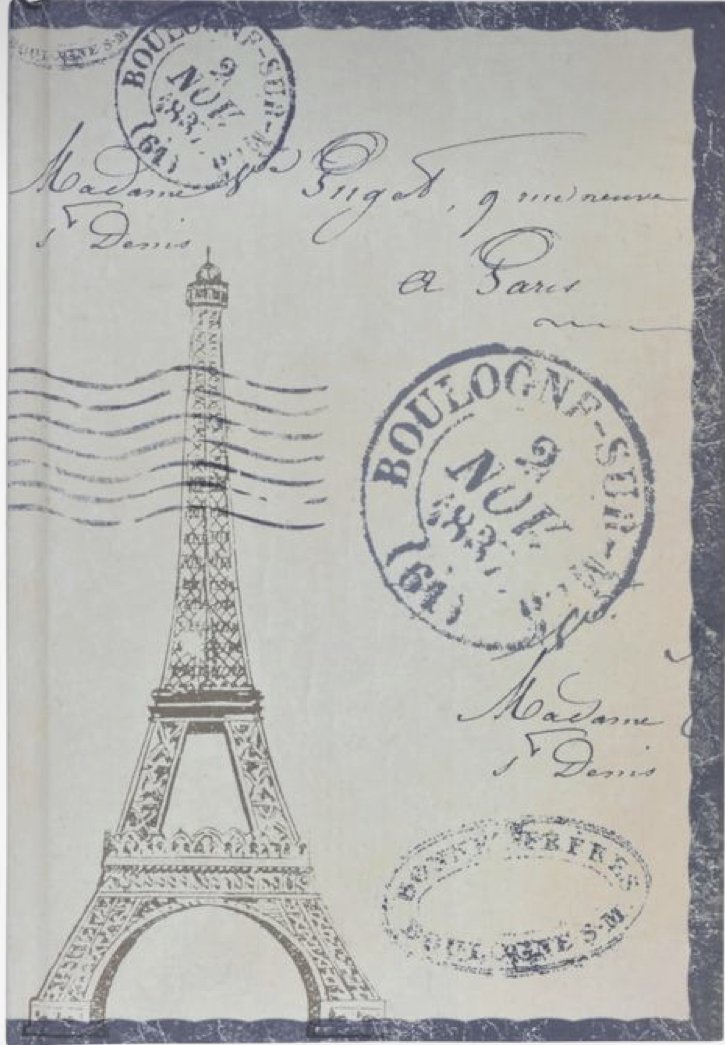 BOULOGNE S·M
BOULOGNE-SUR-M
9
NOV
1837
(61)
Madame Vve Puget, 9 rue neuve
St Denis
a Paris
BOULOGNE-SUR-M
9
NOV
1837
(61)
Madame
St Denis
BONNE FRERES
BOULOGNE S·M